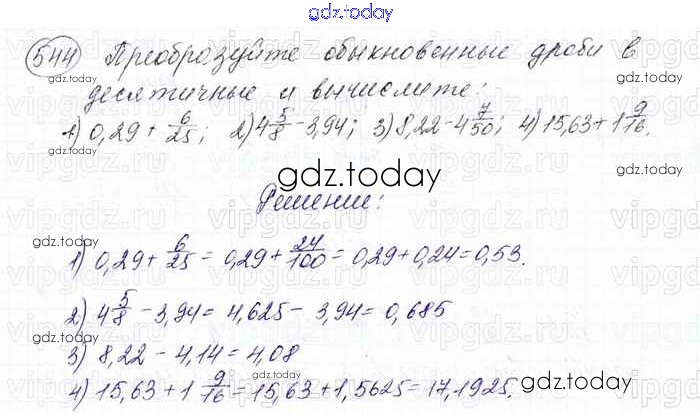 gdz.today
544 Преобразуйте обыкновенные дроби в
десятичные и вычислите:
1) 0,29 + 6/25; 2) 4 5/8 - 3,94; 3) 8,22 - 4 7/50; 4) 15,63 + 1 9/16.
gdz.today
gdz.today
gdz.today
Решение:
gdz.today
gdz.today
1) 0,29 + 6/25 = 0,29 + 24/100 = 0,29 + 0,24 = 0,53.
2) 4 5/8 - 3,94 = 4,625 - 3,94 = 0,685
gdz.today
gdz.today
3) 8,22 - 4,14 = 4,08
4) 15,63 + 1 9/16 = 15,63 + 1,5625 = 17,1925.
gdz.today